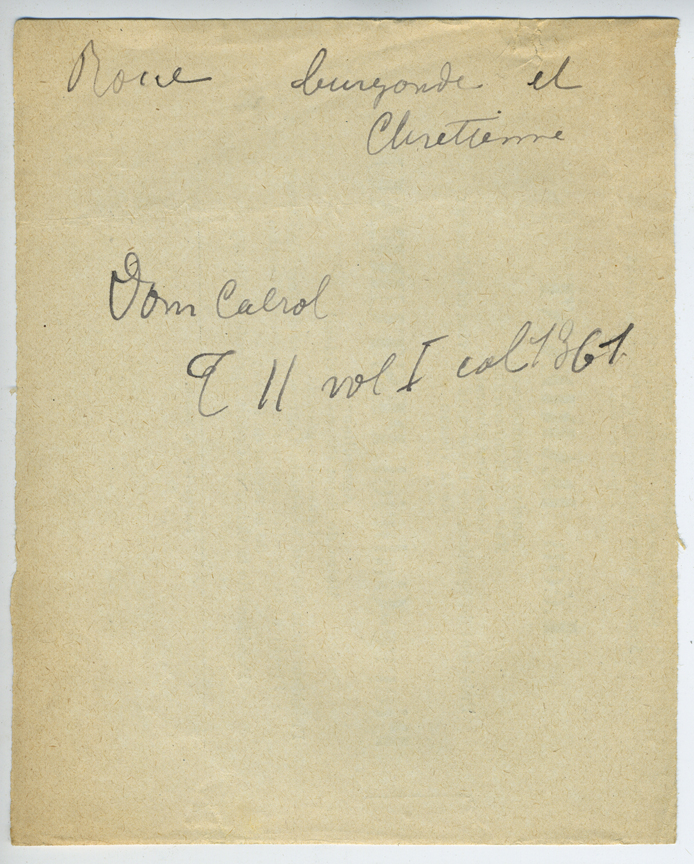 Roue burgonde et
Chretienne
Dom Cabrol
T II vol I col 1361